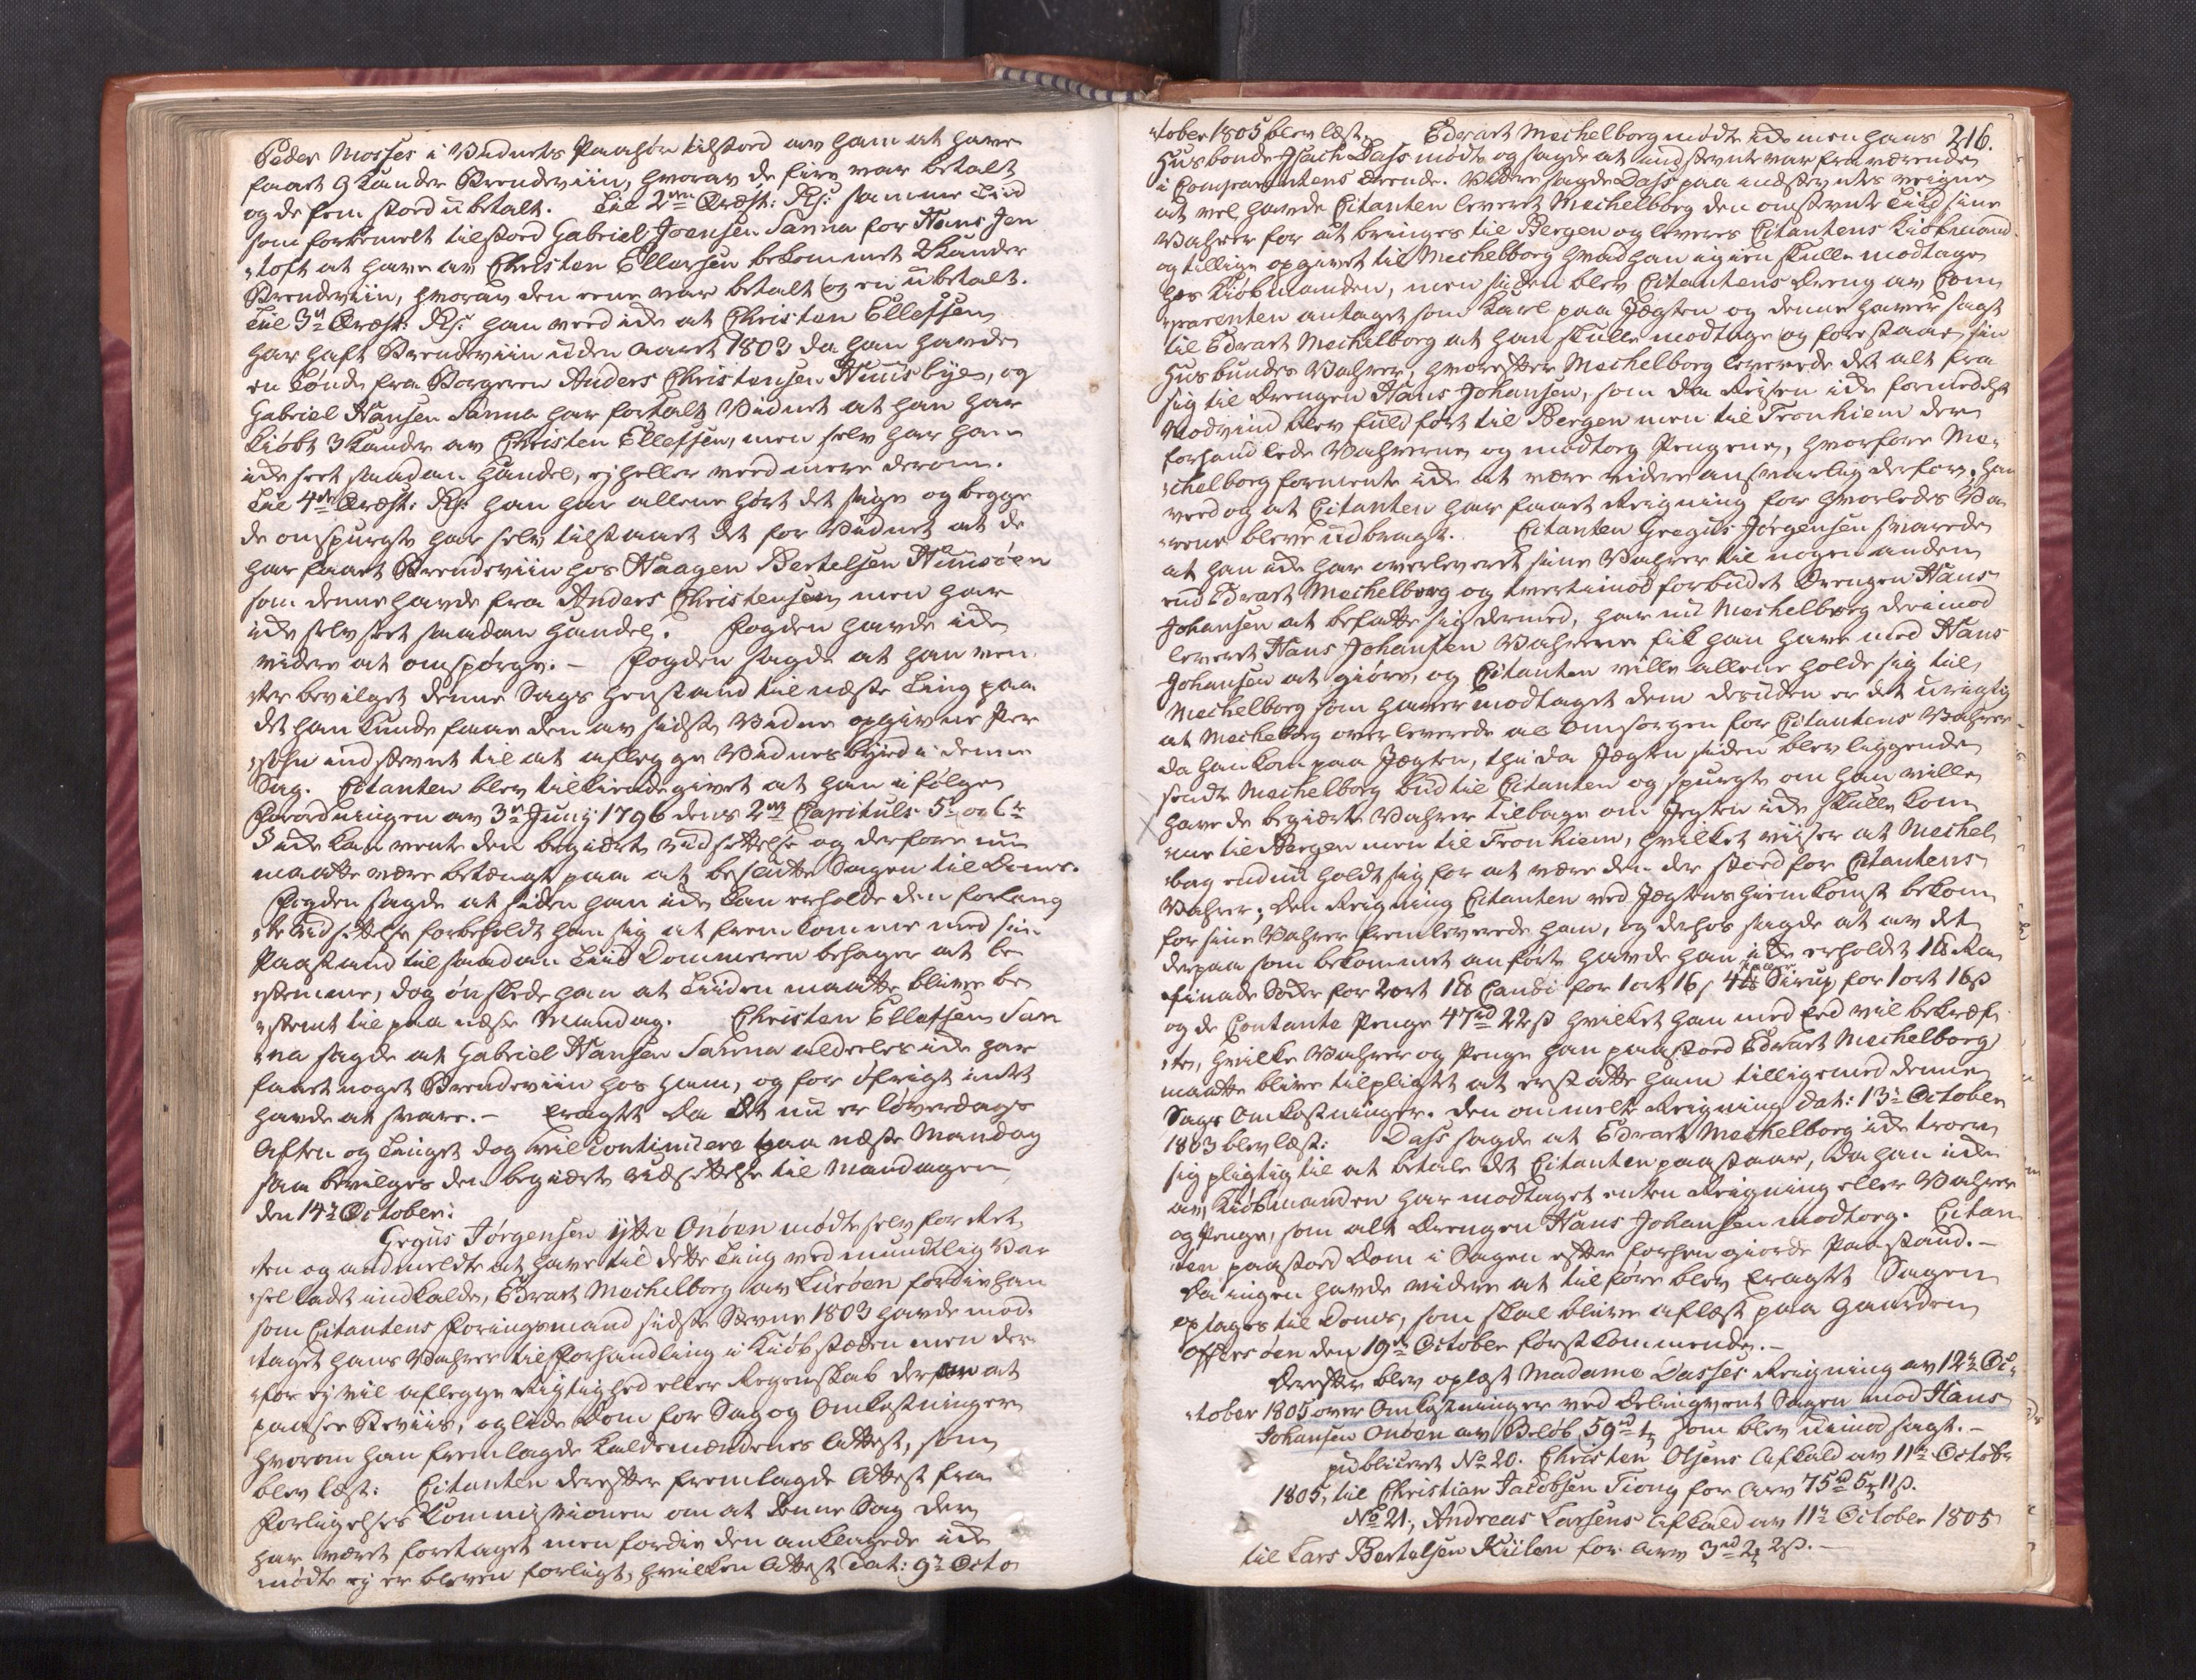 Peder Mosses i Vidnets Paahør tilstoed av ham at have
faaet 9 Kander Brendeviin, hvorav de fire var betalt
og de fem stoed ubetalt. Til 2den Qvæst: Rs: samme Tiid
som forhen melt tilstoed Gabriel Joensen Sanna for Hans Jen
„toft at have av Christen Ellefsen bekommet 2 Kander
Brendeviin, hvorav den eene var betalt og en ubetalt.
Til 3de Qvæst: Rs: han veed ikke at Christen Ellefsen
har haft Brendeviin uden Aaret 1803 da han havde
en Tønde fra Borgeren Anders Christensen Huusbye, og
Gabriel Hansen Sanna har fortalt Vidnet at han har
kiøbt 3 Kander av Christen Ellefsen, men selv har han
ikke seet saadan Handel, ej heller veed mere derom.
Til 4de Qvæst: Rs: han har allene hørt det sige og begge
de omspurgte har selv tilstaaet det for Vidnet at de
har faaet Brendeviin hos Haagen Bertelsen Huusøen
som denne havde fra Anders Christensen men har
ikke selv seet saadan Handel. Fogden havde ikke
videre at omspørge. – Fogden sagde at han ven
„ter bevilget denne Sags Henstand til næste Ting paa
det han kunde faae den av sidste Vidne opgivne Per
„sohn indstevnt til at aflegge Vidnesbyrd i denne
Sag. Citanten blev tilkiendegivet at han i følge
Forordningen av 3de Juny 1796 dens 2det Capituls 5te og 6te
§ ikke kan vente den begiærte Udsettelse og derfore nu
maatte være betænkt paa at beslutte Sagen til Doms.
Fogden sagde at siden han ikke kan erholde den forlang
„te Udsettelse forbeholdt han sig at fremkomme med sin
Paastand til saadan Tiid Dommeren behager at be
„stemme, dog ønskede han at Tiiden maatte blive be
„stemt til paa næste Mandag. Christen Ellefsen San
„na sagde at Gabriel Hansen Sanna aldeeles ikke har
faaet noget Brendeviin hos ham, og for øfrigt intet
havde at svare. – Eragtet Da det nu er løverdags
Aften og Tinget dog vil Continuere paa næste Mandag
saa bevilges den begiærte Udsettelse til Mandagen
den 14de October:
Gregus Jørgensen Yttre Onøen mødte selv for Ret
„ten og anmeldte at have til dette Ting ved mundtlig Var
„sel ladet indkalde, Edvart Mechelborg av Lurøen fordie han
som Citantens Føringsmand sidste Stevne 1803 havde mod
„taget hans Vahrer til Forhandling i Kiøbstæden men der
„for ej vil aflegge Rigtighed eller Regenskab derom at
paasee Beviis, og lide Dom for Sag og Omkostninger
hvorom han fremlagde Kaldsmændenes Attest, som
blev læst: Citanten derefter fremlagde Attest fra
Forligelses Kommissionen om at denne Sag der
har været foretaget men fordie den anklagede ikke
mødte ej er bleven forligt, hvilken Attest dat: 9de Octo
„tober 1805 blev læst. Edvart Mechelborg mødte ikke men hans 216.
Husbonde Isach Dass mødte og sagde at indstevnte var fraværende
i Comparentens Ærende. Videre sagde Dass paa indstevntes veigne
at vel havde Citanten leveret Mechelborg den omstevnte Tiid sine
Vahrer for at bringes til Bergen og leveres Citantens Kiøbmand
og tillige opgivet til Mechelborg hvad han igien skulle modtage
hos Kiøbmanden, men siden blev Citantens Dreng av Com
„parenten antaget som Karl paa Jægten og denne haver sagt
til Edvart Mechelborg at han skulle modtage og forestaae sin
Husbondes Vahrer, hvorefter Mechelborg leverede det alt fra
sig til Drengen Hans Johansen, som da Reisen ikke formedelst
Modvind blev fuldført til Bergen men til Tronhiem der
forhandlede Vahrerne og modtog Pengene, hvorfore Me„
„chelborg formente ikke at være videre ansvarlig derfor; han
veed og at Citanten har faaet Reigning for hvorledes Va
„rene bleve udbragt. Citanten Gregus Jørgensen svarede
at han ikke har overleveret sine Vahrer til nogen anden
end Edvart Mechelborg og tvertimod forbudet Drengen Hans
Johansen at befatte sig dermed, har nu Mechelborg derimod
leveret Hans Johansen Vahrene fik han have med Hans
Johansen at giøre, og Citanten ville allene holde sig til
Mechelborg som haver modtaget dem desuden er det urigtig
at Mechelborg overleverede al Omsorgen for Citantens Vahrer
da han kom paa Jægten, thi da Jægten siden blev liggende
sendte Mechelborg bud til Citanten og spurgte om han ville
have de begiærte Vahrer tilbage om Jegten ikke skulle kom
„me til Bergen men til Tronhiem, hvilket viiser at Mechel
„borg endnu holdt sig for at være den der stoed for Citantens
Vahrer; Den Reigning Citanten ved Jægtens Hiemkomst bekom
for sine Vahrer fremleverede han, og derhos sagde at av det
derpaa som bekommet anførte havde han ikke erholdt 1 ℔ Ra
„finade Sòker for 2 ort 1 ℔ Candi for 1 ort 16 ß 4 Sirup for 1 ort 16 ß
og de Contante Penge 47rd 22 ß hvilket han med Eed vil bekræf
„te, hvilke Vahrer og Penge han paastoed Edvart Mechelborg
maatte blive tilpligtet at erstatte ham tilligemed denne
Sags Omkostninger. Den ommelte Reigning dat: 13de October
1803 blev læst: Dass sagde at Edvart Mechelborg ikke troer
sig pligtig til at betale det Citanten paastaar, da han ikke
av Kiøbmanden har modtaget enten Reigning eller Vahrer
og Penge, som alt Drengen Hans Johansen modtog. Citan
„ten paastoed Dom i Sagen efter forhen giorde Paastand. –
Da ingen havde videre at tilføre blev Eragtet Sagen
optages til Doms, som skal blive aflæst paa Gaarden
Offersøen den 19de October førstkommende. –
Derefter blev oplæst Madame Dasses Reigning av 12te Oc„
„tober 1805 over Omkostninger ved Delinqvent Sagen mod Hans
Johansen Onøen av Beløb 59rd 1 som blev uimodsagt. –
publiceret No 20. Christen Olsens Afkald av 11te Octobr
1805, til Christian Jacobsen Tiong for Arv 75rd 5 11 ß.
No 21, Andreas Larsens Afkald av 11te October 1805
til Lars Bertelsen Kiilen for Arv 3rd 2 2 ß. –